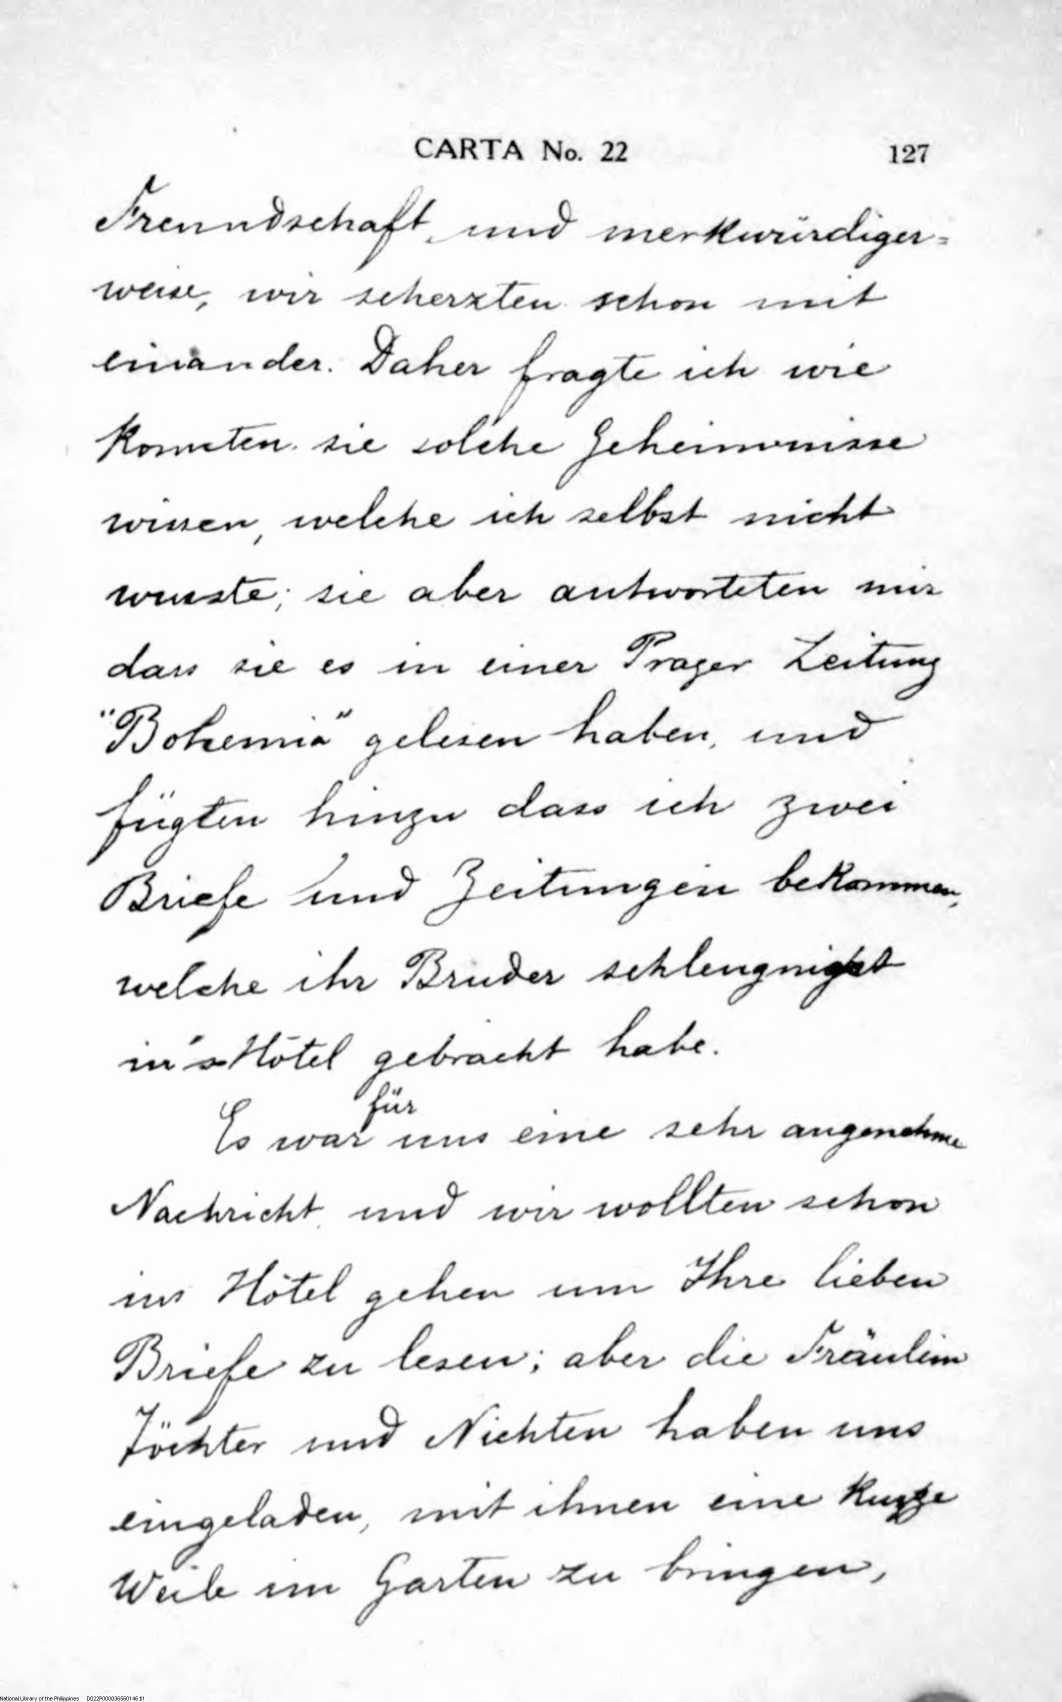 CARTA No. 22 127
Freundschaft, und merkwürdiger=
weise, wir scherzten schon mit
einander. Daher fragte ich wie
konnten sie solche Geheimnisse
wissen, welche ich selbst nicht
wusste; sie aber antworteten mir
dass sie es in einer Prager Zeitung
"Bohemia" gelesen haben, und
fügten hinzu dass ich zwei
Briefe und Zeitungen bekommen,
welche ihr Bruder schlengnigst
in's Hôtel gebracht habe.
für
Es war uns eine sehr angenehme
Nachricht, und wir wollten schon
ins Hôtel gehen um Ihre lieben
Briefe zu lesen; aber die Fräulein
Töchter und Nichten haben uns
eingeladen, mit ihnen eine kurze
Weile im Garten zu bringen,
National Library of the Philippines